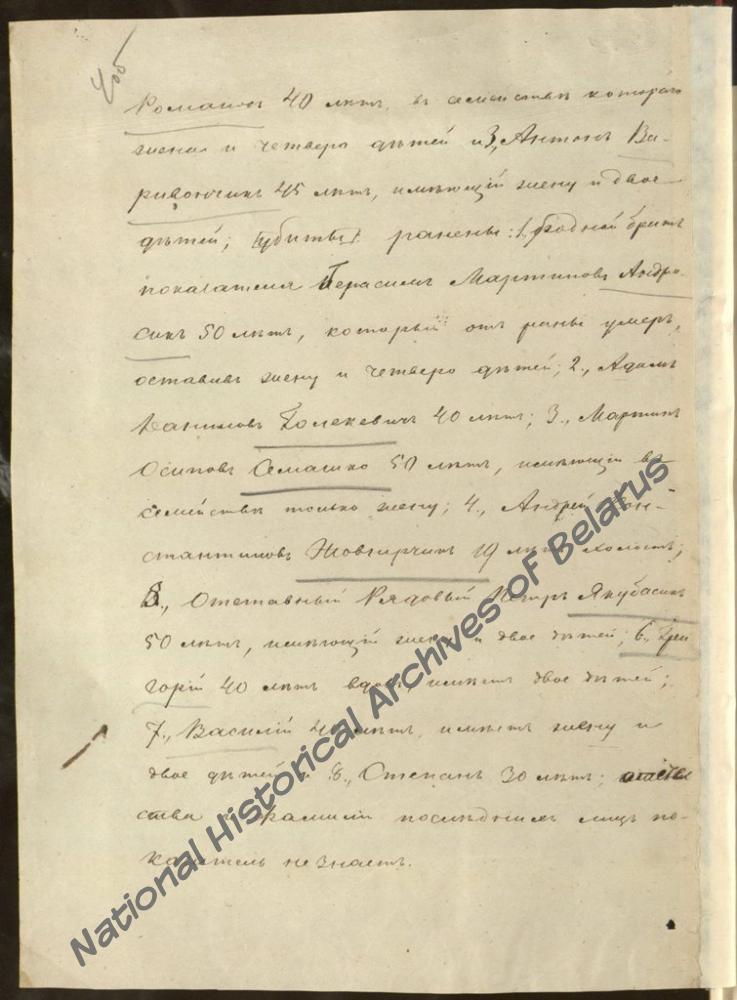 4об
Романовъ 40 лѣтъ, въ семействѣ котораго
жена и четверо дѣтей и 3, Антонъ Ва-
ривончикъ 45 лѣтъ, имѣющій жену и двое
дѣтей; ранены: 1, родной братъ
показателя Герасимъ Мартиновъ Андро-
сикъ 50 лѣтъ, который отъ раны умеръ,
оставивъ жену и четверо дѣтей; 2., Адамъ
Ивановъ 40 лѣтъ; 3., Мартинъ
Осиповъ Семашко 50 лѣтъ, имѣющій въ
семействѣ только жену; 4., Андрей Кон-
стантиновъ Жовнирчикъ 19 лѣтъ холостъ;
5., Отставный Рядовый Петръ Якубасикъ
50 лѣтъ, имѣющій жену и двое дѣтей; 6., Гри
горій 40 лѣтъ вдовъ, имѣетъ двое дѣтей;
7., Василій лѣтъ, имѣетъ жену и
двое дѣтей и 8., Степанъ 30 лѣтъ; отече
ства и фамиліи послѣднимъ лицъ по-
казатель не знаетъ.
National Historical Archives of Belarus